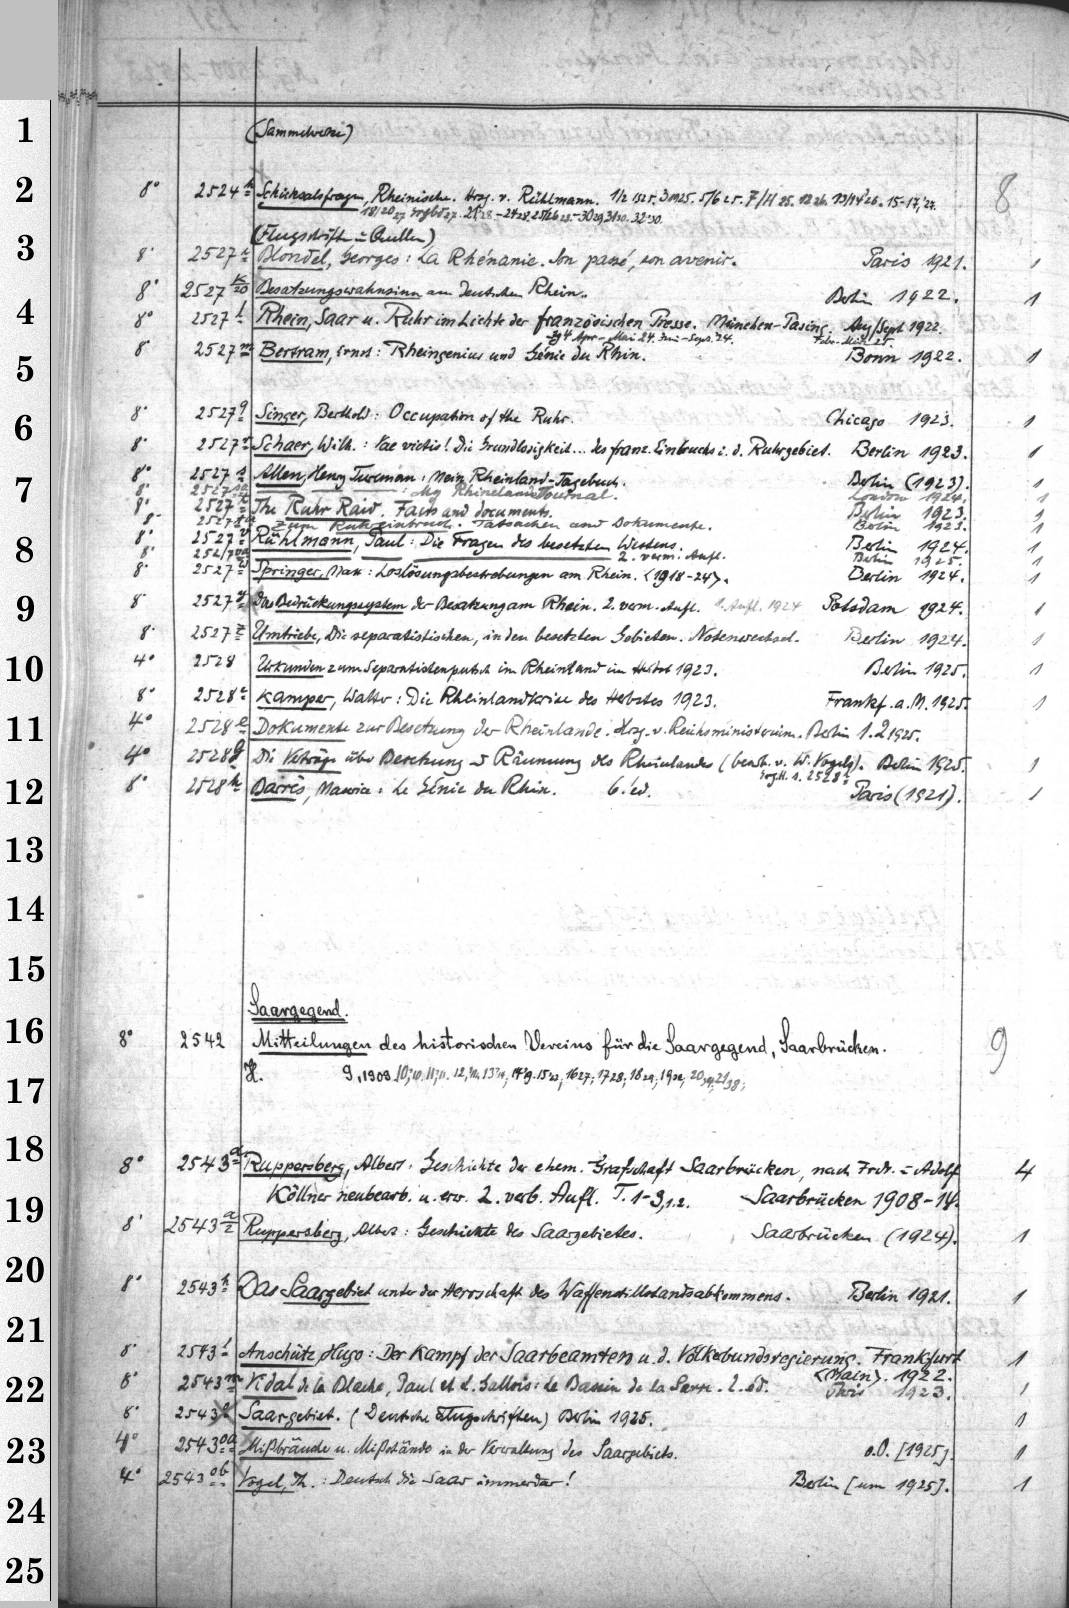 1
(Sammelwerke)
2
8° 2524 h Schicksalsfragen, Rheinische. Hrsg. v. Rühlmann. 1/2 1925. 3 1925. 5/6 25. 8
(Flugschriften u. Quellen)
3
8° 2527 i Blondel, Georges: La Rhénanie. Son passé, son avenir. Paris 1921. 1
8° 2527 k/20 Besatzungswahnsinn am deutschen Rhein. Berlin 1922. 1
4
8° 2527 l Rhein, Saar u. Ruhr im Lichte der französischen Presse. München-Pasing. Aug/Sept 1922.
Jg 4 Apr.-Mai 24. Juni-Sept. '24. Febr.-Mrz. 25.
8° 2527 m Bertram, Ernst: Rheingenius und Génie du Rhin. Bonn 1922. 1
5
8° 2527 q Singer, Berthold: Occupation of the Ruhr. Chicago 1923. 1
6
8° 2527 r Schaer, Wilh.: Vae victis! Die Grundlosigkeit... des franz. Einbruchs i. d. Ruhrgebiet. Berlin 1923. 1
8° 2527 s Allen, Henry Tureman: Mein Rheinland-Tagebuch. Berlin (1923). 1
7
8° 2527 sa : My Rhineland Journal. London 1924. 1
8° 2527 t The Ruhr Raid. Facts and documents. Berlin 1923. 1
8° Zum Ruhreinbruch. Tatsachen und Dokumente. Berlin 1923. 1
8° 2527 v Rühlmann, Paul: Die Fragen des besetzten Westens. Berlin 1924. 1
8
8° 2527 va 2. verm. Aufl. Berlin 1925. 1
8° 2527 w Springer, Max: Loslösungsbestrebungen am Rhein. <1918-24>. Berlin 1924. 1
9
8° 2527 y Das Bedrückungssystem der Besatzung am Rhein. 2. verm. Aufl. 1. Aufl. 1924 Potsdam 1924. 1
8° 2527 z Umtriebe, Die separatistischen, in den besetzten Gebieten. Notenwechsel. Berlin 1924. 1
10
4° 2528 Urkunden zum Separatistenputsch im Rheinland im Herbst 1923. Berlin 1925. 1
8° 2528 c Kamper, Walter: Die Rheinlandkrise des Herbstes 1923. Frankf. a. M. 1925. 1
11
4° 2528 e Dokumente zur Besetzung der Rheinlande. Hrsg. v. Reichsministerium. Berlin 1. 2 1925.
4° 2528 g Die Verträge über Besetzung u. Räumung des Rheinlandes (bearb. v. W. Vogels). Berlin 1925. 1
12
8° 2528 h Barrès, Maurice: Le Génie du Rhin. 6. éd. Paris (1921). 1
13
14
15
Saargegend.
16
8° 2542 Mitteilungen des historischen Vereins für die Saargegend, Saarbrücken. 9
H. 9, 1909
17
18
8° 2543 a Ruppersberg, Albert: Geschichte der ehem. Grafschaft Saarbrücken, nach Frdr. u. Adolf 4
Köllner neubearb. u. erw. 2. verb. Aufl. T. 1-3,1.2. Saarbrücken 1908-14.
19
8° 2543 a/2 Ruppersberg, Albert: Geschichte des Saargebietes. Saarbrücken (1924). 1
20
8° 2543 h Das Saargebiet unter der Herrschaft des Waffenstillstandsabkommens. Berlin 1921. 1
21
8° 2543 l Anschütz, Hugo: Der Kampf der Saarbeamten u. d. Völkerbundsregierung. Frankfurt 1
<Main>. 1922.
22
8° 2543 m Vidal de la Blache, Paul et L. Gallois: Le Bassin de la Sarre. 2. éd. Paris 1923. 1
8° 2543 Saargebiet. (Deutsche Flugschriften) Berlin 1925. 1
23
4° 2543 oa Mißbräuche u. Mißstände in der Verwaltung des Saargebiets. o.O. [1925]. 1
4° 2543 ob Vogel, Th.: Deutsch die Saar immerdar! Berlin [um 1925]. 1
24
25